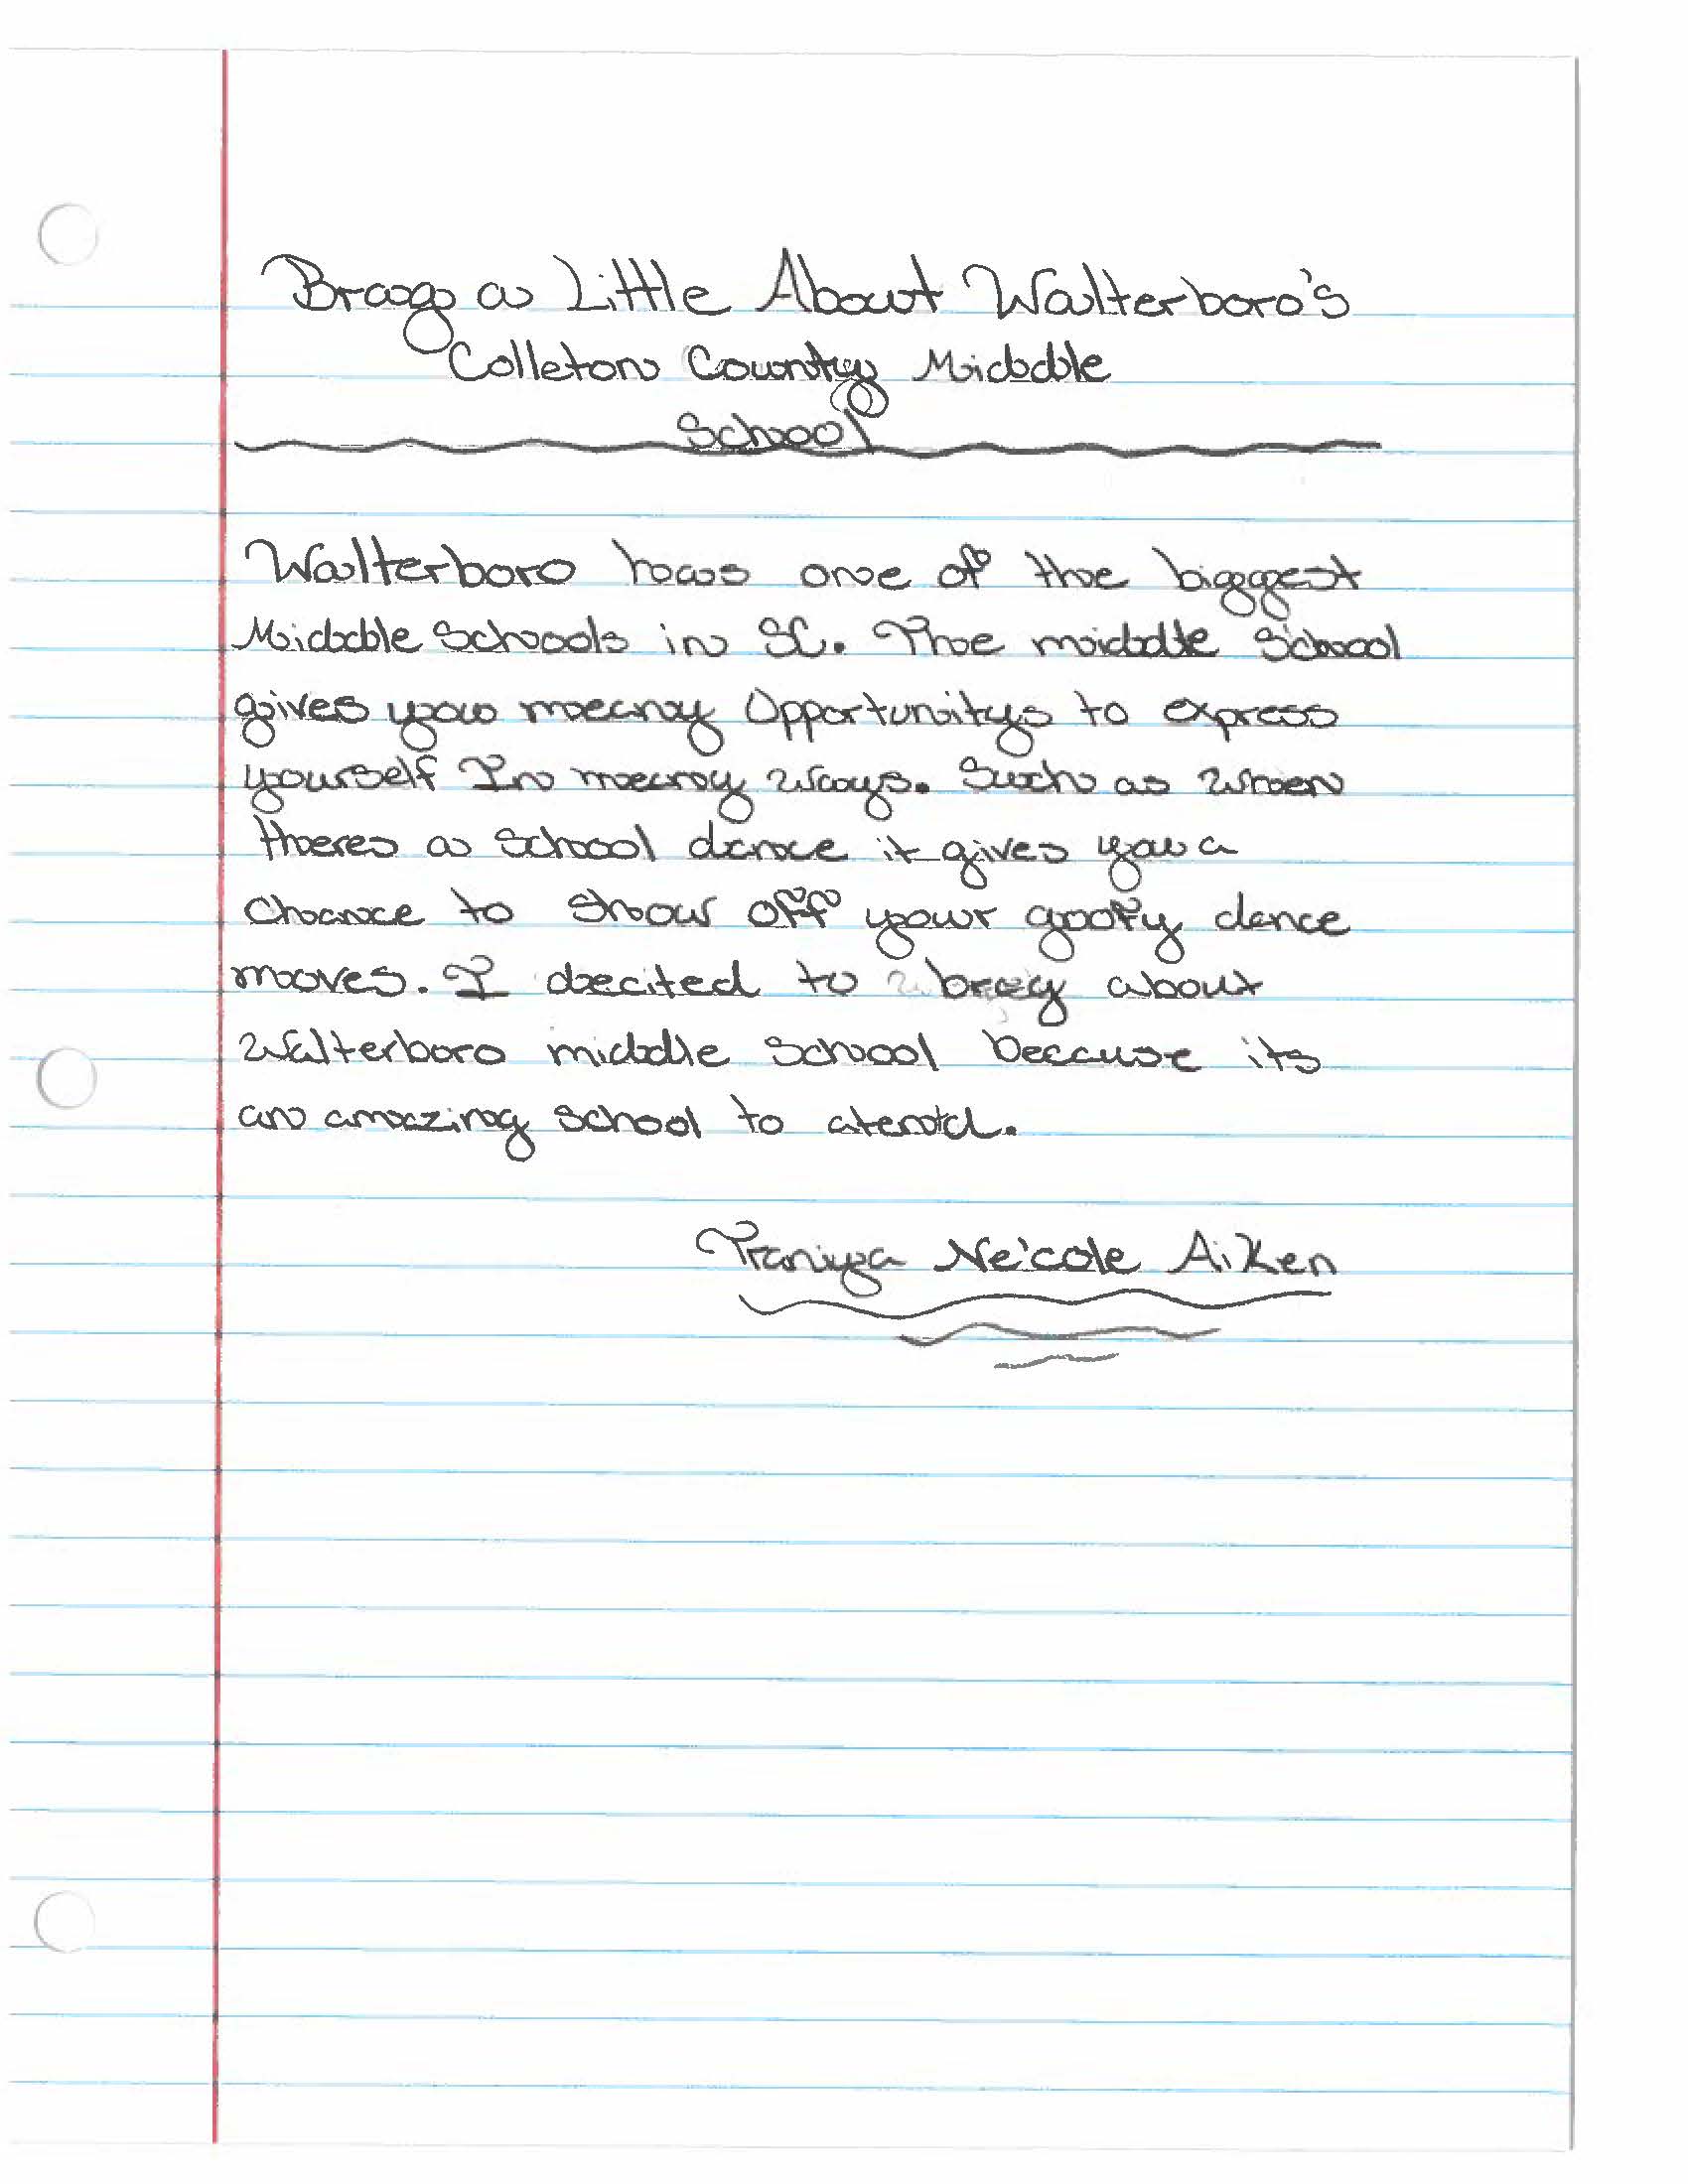 Brag a Little About Walterboro's
Colleton County Middle
School
Walterboro has one of the biggest
Middle Schools in SC. The middle School
gives you many Opportunitys to express
yourself In many ways. Such as when
theres a School dance it gives you a
Chance to show off your goofy dance
moves. I decited to brag about
Walterboro middle School because its
an amazing School to atend.
Traniya Ne'cole Aiken